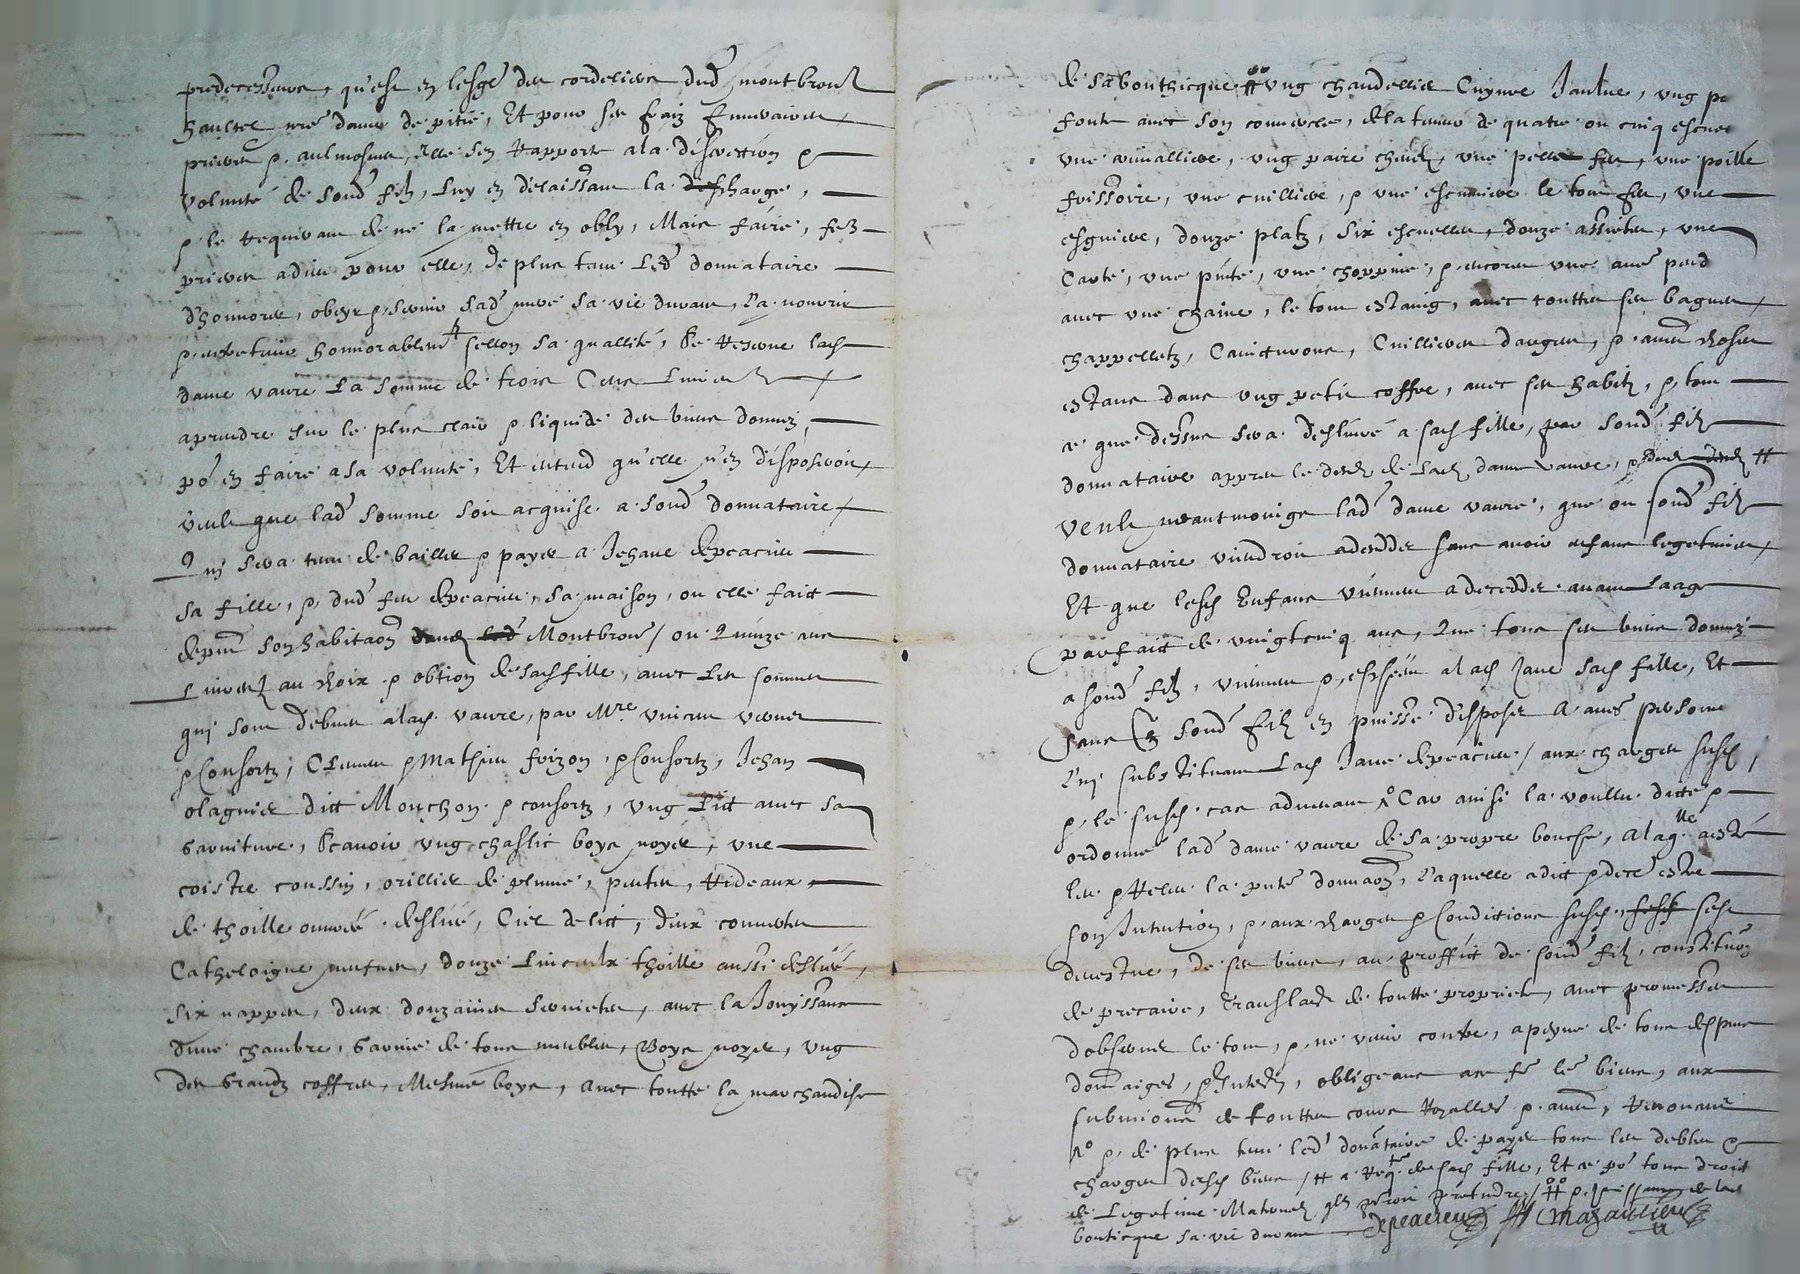 predecesseurs, qu'est en lesglé des cordeliers dud montbron
haultel nre dame de pitié, Et pour ses fraiz funeraires
prieres p. aulmosnes, elle sen Rapporte a la discretion p
volunté de sond filz, luy en delaissant la charge,
p le requerant de ne la mettre en obly, Mais faire, ses
prieres a dieu pour elle, de plus tenu led donnataire
d'honnorer, obeyr p, servir sad mere sa vie durant, la nourrir
p. entretenir honnorablemt sellon sa quallité, Se Reserve lad
dame vaure La somme de trois Cens Livres
aprendre sur le plus clair p liquide des biens donnez,
po en faire a sa volunté, Et entend qu'elle n'en disposeroit
veult que lad somme soit acquise a sond donnataire
Qui sera tenu de bailler p payer a Jehane depeacieu
sa fille, p dud feu depeacieu, sa maison, ou elle faict
depnt son habitaon Montbron / ou Quinze cens
Livres au choix p obtion de sad fille, avec Les sommes
qui sont debues a lad. vaure, par Mre vincen verne
p Consortz, Clemen p Mathieu frizon, p Consortz, Jehan
olagnier ditt Mouchon p consortz, ung Litt avec sa
Garniture, Scavoir ung chaslic boys noyer, une
coistre coussin, orillier de plume, pentes, Rideaux
de thoille ouvree deslié, Ciel de litt, deux couvertes
Catheloigne, douze Linceulx thoille aussi deslié,
six nappes, deux douzaines serviettes, avec la Jouyssance
d'une chambre, Garnie de tous meubles, Boys noyer, ung
des Grandz coffres, Mesme boys, avec toutte la marchandise
de sa bouthicque # ung chandellier Cuyvre Jaulne, ung po
fonte avec son couvercle, de la teneur de quatre ou cinq escuel
une, ung paire chenetz, une pelle fer, une poille
frissoire, une cuilliere, p une escumoire le tout fer, une
esguiere, douze platz, six escuelles, douze assiettes, une
Carte, une pinte, une choppine, p. encores une aue pend
avec une chaine, le tout estaing, avec touttes ses bagues
chappelletz, Cainturons, Cuillieres dargen, p. autres choses
estans dans ung petit coffre, avec ses habitz, p. tout
ce que dessus sera deslivré a sad fille, par sond filz
donnataire appres le deces de lad dame vaure, #
Veult neantmoings lad dame vaure, que ou sond filz
donnataire viendroit a decedder sans avoir enfans legetimes
Et que lesd Enfans vinssent a decedder avant Laage
parfaict de vingtcinq ans, Que tous ses biens donnez
a sond filz, vienent p, a lad Jane sad fille, Et
sans q sond filz en puisse disposer a aues persones
Luy substituant Lad Jane depeacieu / aux charges susd,
p. le susd cas advenant / Car ainsi la voullu dicté p
ordonné lad dame vaure de sa propre bouche, a laqlle a esté
leu p Releu la pnte donnaon, laquelle a dict p declé estre
son Intention, p. aux charges p Conditions susd. sest
devestue, de ses biens, au proffict de sond filz, constituon
de precaire, translaon de toutte proprieté, avec promesses
dobserver le tout, p, ne venir contre, a peyne de tous despens
domaiges, p Interestz, obligeant a ce fe ses biens, aux
submions de touttes cours Royalles p. autres, Renoncant
p. de plus tenu led donataire de payer tous les debtes p
charges desd biens / # a Reqte de sad fille, Et ce po tous droict
de Legetime Maternel qlle pourroit pretendre / # p Jouissance de lad
bouticque sa vie durant depeacieu Mazaulier